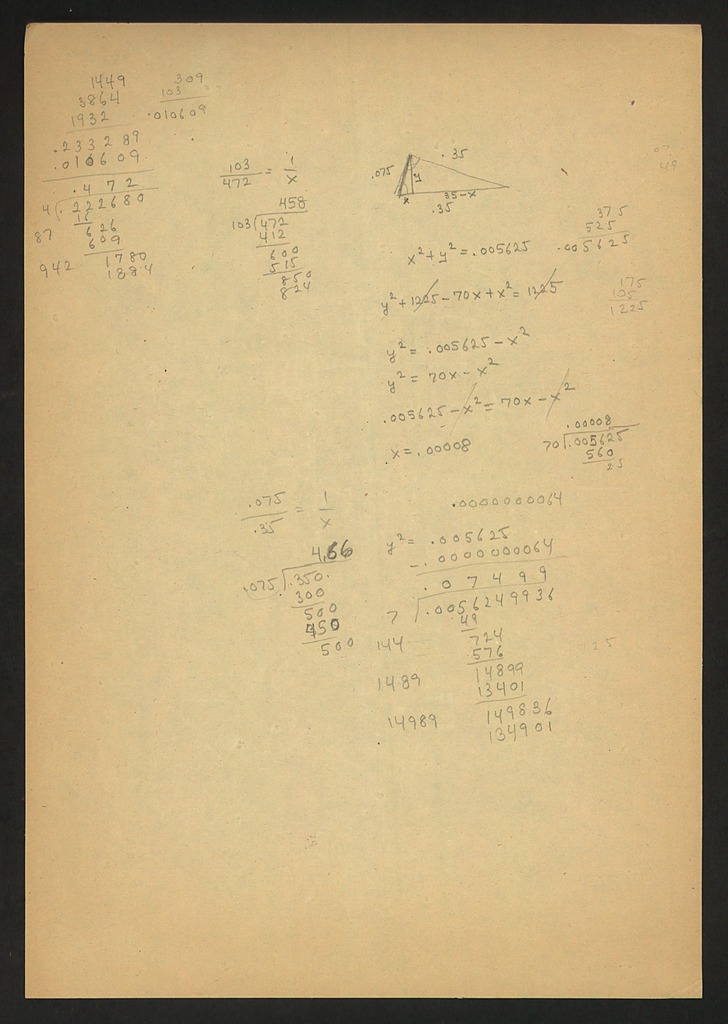 1449
3864
1932
.233289
.010609
.472
4 .222680
16
87 626
609
942 1780
1884
309
103
.010609
103/472 = 1/x
458
103 472
412
600
515
850
824
.075 .35 y
x 35-x
.35
375
525
.005625
x² + y² = .005625
y² + 1225 - 70x + x² = 1225
175
105
1225
y² = .005625 - x²
y² = 70x - x²
.005625 - x² = 70x - x²
x = .00008
.00008
70 .005625
560
25
.075/.35 = 1/x
4.66
.075 .350.
300
500
450
500
.0000000064
y² = .005625
-.0000000064
.07499
7 .0056249936
49
144 724
576
1489 14899
13401
14989 149836
134901